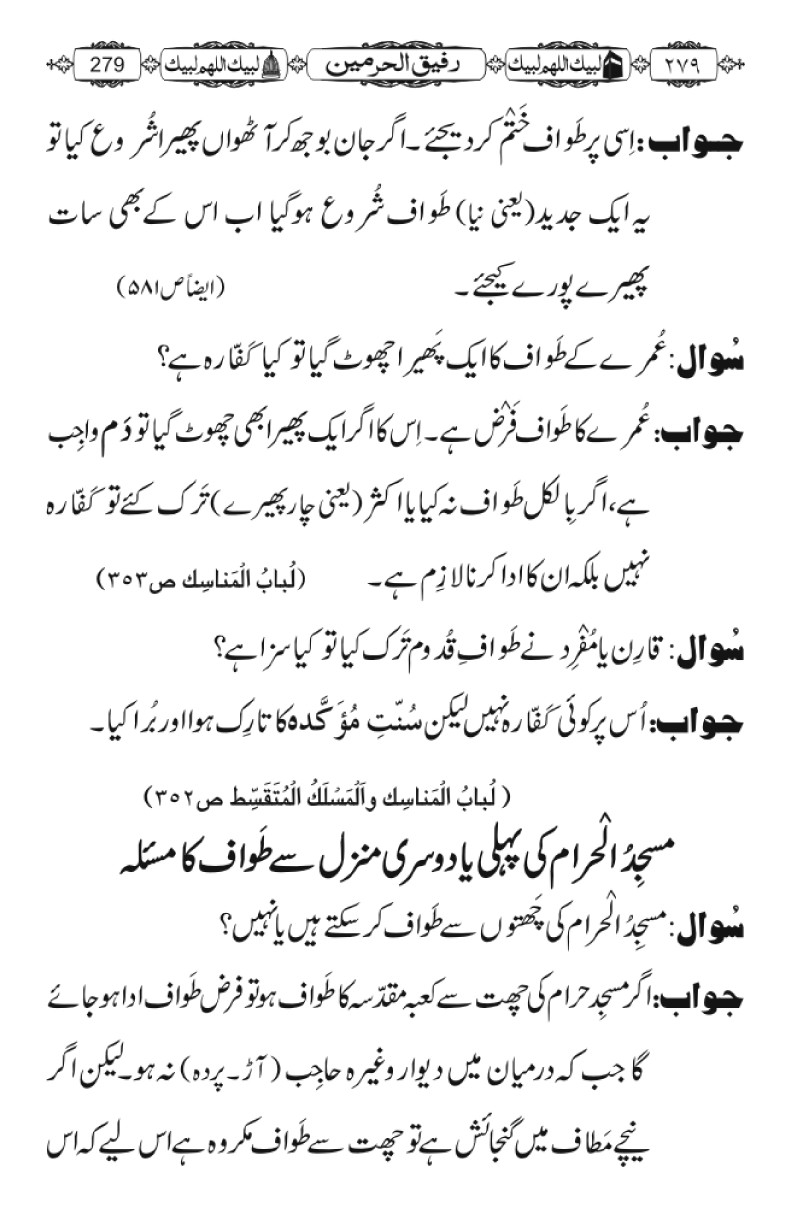 ۲۷۹ لبيك اللهم لبيك رفیق الحرمین لبيك اللهم لبيك 279
جواب: اِسی پر طَواف خَتْم کر دیجئے ۔ اگر جان بوجھ کر آٹھواں پھیرا شُروع کیا تو
یہ ایک جدید (یعنی نیا) طَواف شُروع ہوگیا اب اس کے بھی سات
پھیرے پورے کیجئے ۔ (ایضاً ص۵۸۱)
سُوال: عُمرے کے طَواف کا ایک پَھیرا چھوٹ گیا تو کیا کَفّارہ ہے؟
جواب: عُمرے کا طَواف فَرْض ہے ۔ اِس کا اگر ایک پھیرا بھی چھوٹ گیا تو دَم واجِب
ہے، اگر بِالکل طَواف نہ کیا یا اکثر (یعنی چار پھیرے) تَرک کئے تو کَفّارہ
نہیں بلکہ ان کا ادا کرنا لازِم ہے ۔ (لُبابُ الْمَناسِك ص۳۵۳)
سُوال: قارِن یا مُفْرِد نے طَوافِ قُدوم تَرک کیا تو کیا سزا ہے؟
جواب: اُس پر کوئی کَفّارہ نہیں لیکن سُنّتِ مُؤَكَّدہ کا تارِک ہوا اور بُرا کیا ۔
(لُبابُ الْمَناسِك واَلْمَسْلَكُ الْمُتَقَسِّط ص۳۵۲)
مسجِدُ الْحرام کی پہلی یا دوسری منزل سے طَواف کا مسئلہ
سُوال: مسجِدُ الْحرام کی چَھتوں سے طَواف کر سکتے ہیں یا نہیں؟
جواب: اگر مسجِد حرام کی چھت سے کعبہ مقدّسہ کا طواف ہو تو فرض طواف ادا ہو جائے
گا جب کہ درمیان میں دیوار وغیرہ حاجِب (آڑ ۔ پردہ) نہ ہو ۔ لیکن اگر
نیچے مَطاف میں گنجائش ہے تو چھت سے طَواف مکروہ ہے اس لیے کہ اس